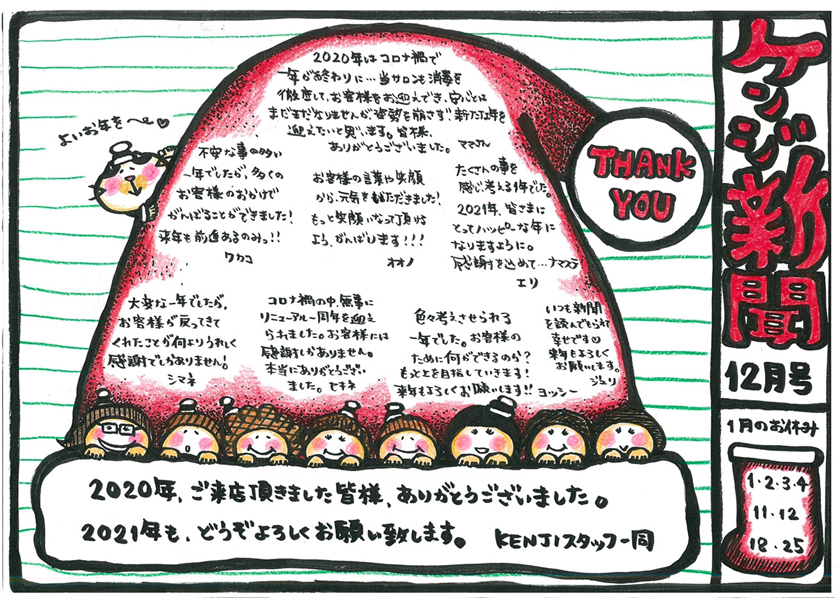 ケンジ新聞
12月号
1月のお休み
1・2・3・4
11・12
18・25
THANK
YOU
よいお年を〜♡
2020年はコロナ禍で
一年が終わりに…当サロンも消毒を
徹底して、お客様をお迎えでき、安心とは
まだまだなりませんが姿勢を崩さず新たな年を
迎えたいと思います。皆様、
ありがとうございました。 ママさん
不安な事の多い
一年でしたが、多くの
お客様のおかげで
がんばることができました!
来年も前進あるのみっ!!
ワカコ
お客様の言葉や笑顔
から、元気を頂だきました!
もっと笑顔になって頂ける
よう、がんばります!!!
オオノ
たくさんの事を
感じ考える1年でした。
2021年、皆さまに
とってハッピーな年に
なりますように。
感謝を込めて…ナマステ
エリ
大変な一年でしたが、
お客様が戻ってきて
くれたことが何よりうれしく
感謝でしかありません!
シマネ
コロナ禍の中、無事に
リニューアル一周年を迎え
られました。お客様には
感謝しかありません。
本当にありがとうござい
ました。 セキネ
色々考えさせられる
一年でした。お客様の
ために何ができるのか?
もっと上を目指していきます!
来年もよろしくお願いします!! ヨッシー
いつも新聞
を読んでもらえて
幸せです♡
来年もよろしく
お願いします。
じゅり
2020年、ご来店頂きました皆様、ありがとうございました。
2021年も、どうぞよろしくお願い致します。 KENJIスタッフ一同